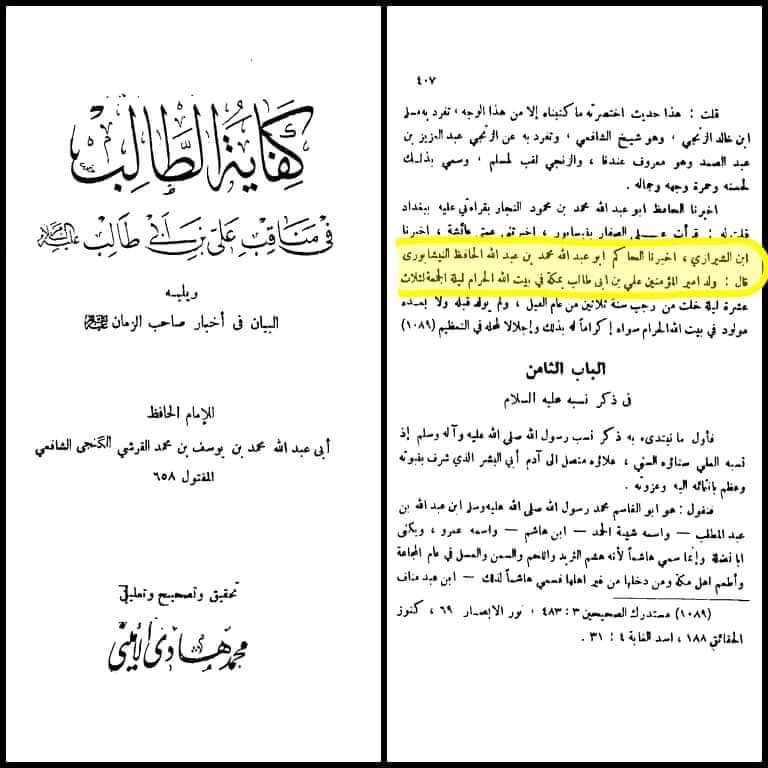 كفاية الطالب
في مناقب علي بن أبي طالب عليه السلام
ويليه
البيان في أخبار صاحب الزمان
للإمام الحافظ
أبي عبد الله محمد بن يوسف بن محمد القرشي الگنجي الشافعي
المقتول ٦٥٨
تحقيق وتصحيح وتعليق
محمد هادي الأميني
٤٠٧
قلت : هذا حديث اختصرته ما كتبناه إلا من هذا الوجه ، تفرد به مسلم
ابن خالد الزنجي ، وهو شيخ الشافعي ، وتفرد به عن الزنجي عبد العزيز بن
عبد الصمد وهو معروف عندنا ، والزنجي لقب لمسلم ، وسمي بذلك
لحسنه وحمرة وجهه وجماله .
اخبرنا الحافظ ابو عبد الله محمد بن محمود النجار بقراءتي عليه ببغداد
قلت له : قرأت على الصفار بنيسابور ، اخبرتني عمتي عائشة ، اخبرنا
ابن الشيرازي ، اخبرنا الحاكم ابو عبد الله محمد بن عبد الله الحافظ النيشابورى
قال : ولد امير المؤمنين علي بن ابى طالب بمكة في بيت الله الحرام ليلة الجمعة لثلاث
عشرة ليلة خلت من رجب سنة ثلاثين من عام الفيل ، ولم يولد قبله ولا بعده
مولود في بيت الله الحرام سواه إكراماً له بذلك وإجلالا لمحله في التعظيم (١٠٨٩)
الباب الثامن
في ذكر نسبه عليه السلام
فأول ما نبتدىء به ذكر نسب رسول الله صلى الله عليه وآله وسلم إذ
نسبه العلي سناؤه السني ، علاؤه متصل الى آدم أبي البشر الذي شرف بنبوته
وعظم بانتمائه اليه وعزوته .
فنقول : هو ابو القاسم محمد رسول الله صلى الله عليه وسلم ابن عبد الله بن
عبد المطلب — واسمه شيبة الحمد — ابن هاشم — واسمه عمرو ، ويكنى
ابا نضلة وإنما سمي هاشماً لأنه هشم الثريد واللحم والسمن والعسل في عام المجاعة
وأطعم اهل مكة ومن دخلها من غير اهلها فسمي هاشماً لذلك — ابن عبد مناف
(١٠٨٩) مستدرك الصحيحين ٣ : ٤٨٣ ، نور الابصار ٦٩ ، كنوز
الحقائق ١٨٨ ، اسد الغابة ٤ : ٣١ .